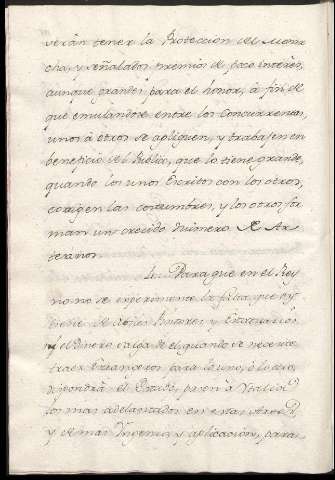 verán tener la Proteccion del Monar
cha, y señalados premios de poco interès,
aunque grandes para el honor, à fin de
que emulandose entre los Concurrentes,
unos à otros se apliquen, y trabajen en
beneficio del Publico, que lo tiene grande,
quando los unos Escritos con los otros,
corrigen las costumbres, y los otros for
man un crecido numero de Ar
tesanos.
Para que en el Rey
no no se experimente la falta que oy
de Pintores y
y el Dinero salga de el quando se necesite
traer Estrangeros, para lo uno, ò lo otro,
dispondrà el Estado, pasen à Ytalia
los mas adelantados en estas Artes,
y de mas Yngenio, y aplicacion, para